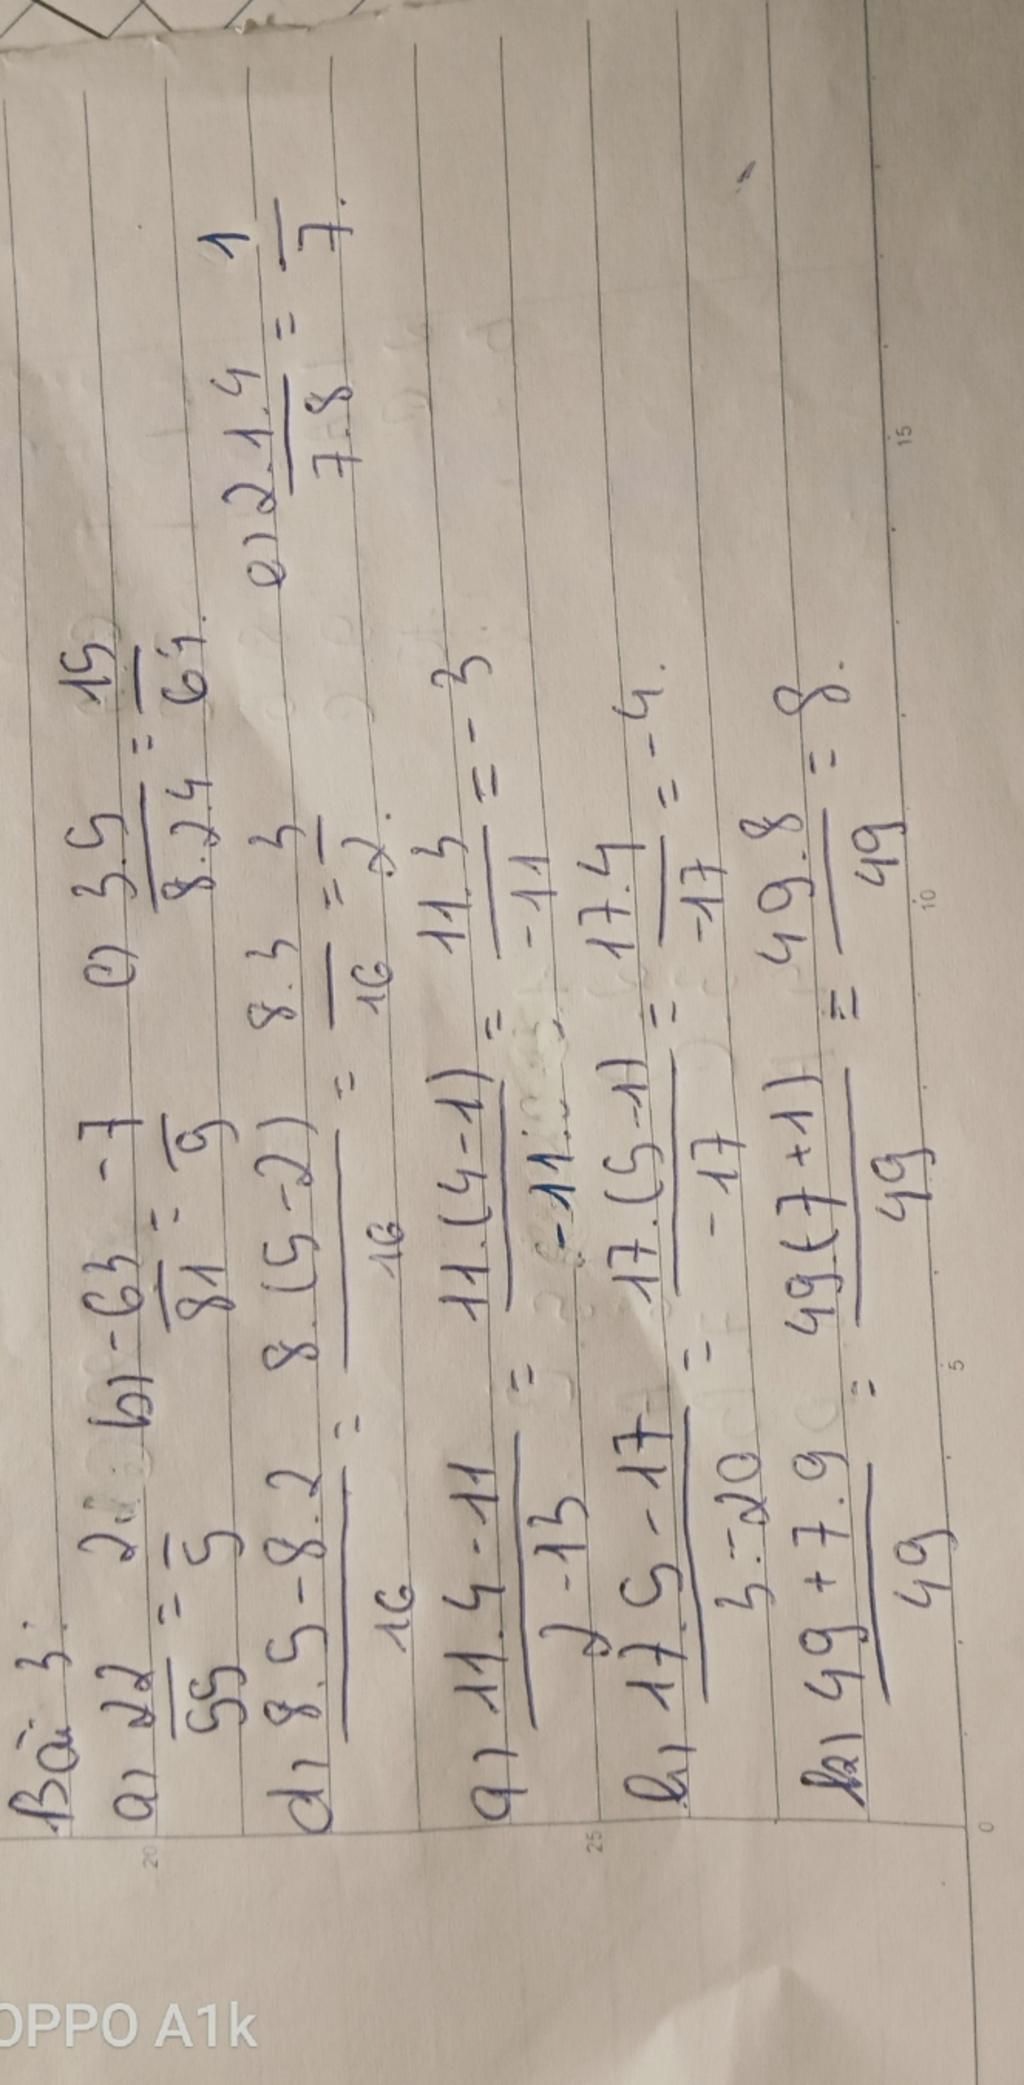 Bài 3:
a) 22/55 = 2/5 b) -63/81 = -7/9 c) 3.5/8.24 = 15/64.
d) 8.5-8.2/16 = 8.(5-2)/16 = 8.3/16 = 3/2. e) 2.1.4/7.8 = 1/7.
g) 11.4-11/2-13 = 11.(4-1)/-11 = 11.3/-11 = -3
h) 17.5-17/3-20 = 17.(5-1)/-17 = 17.4/-17 = -4.
k) 49+7.9/49 = 49(7+1)/49 = 49.8/49 = 8.
20
25
0
5
10
15
OPPO A1k